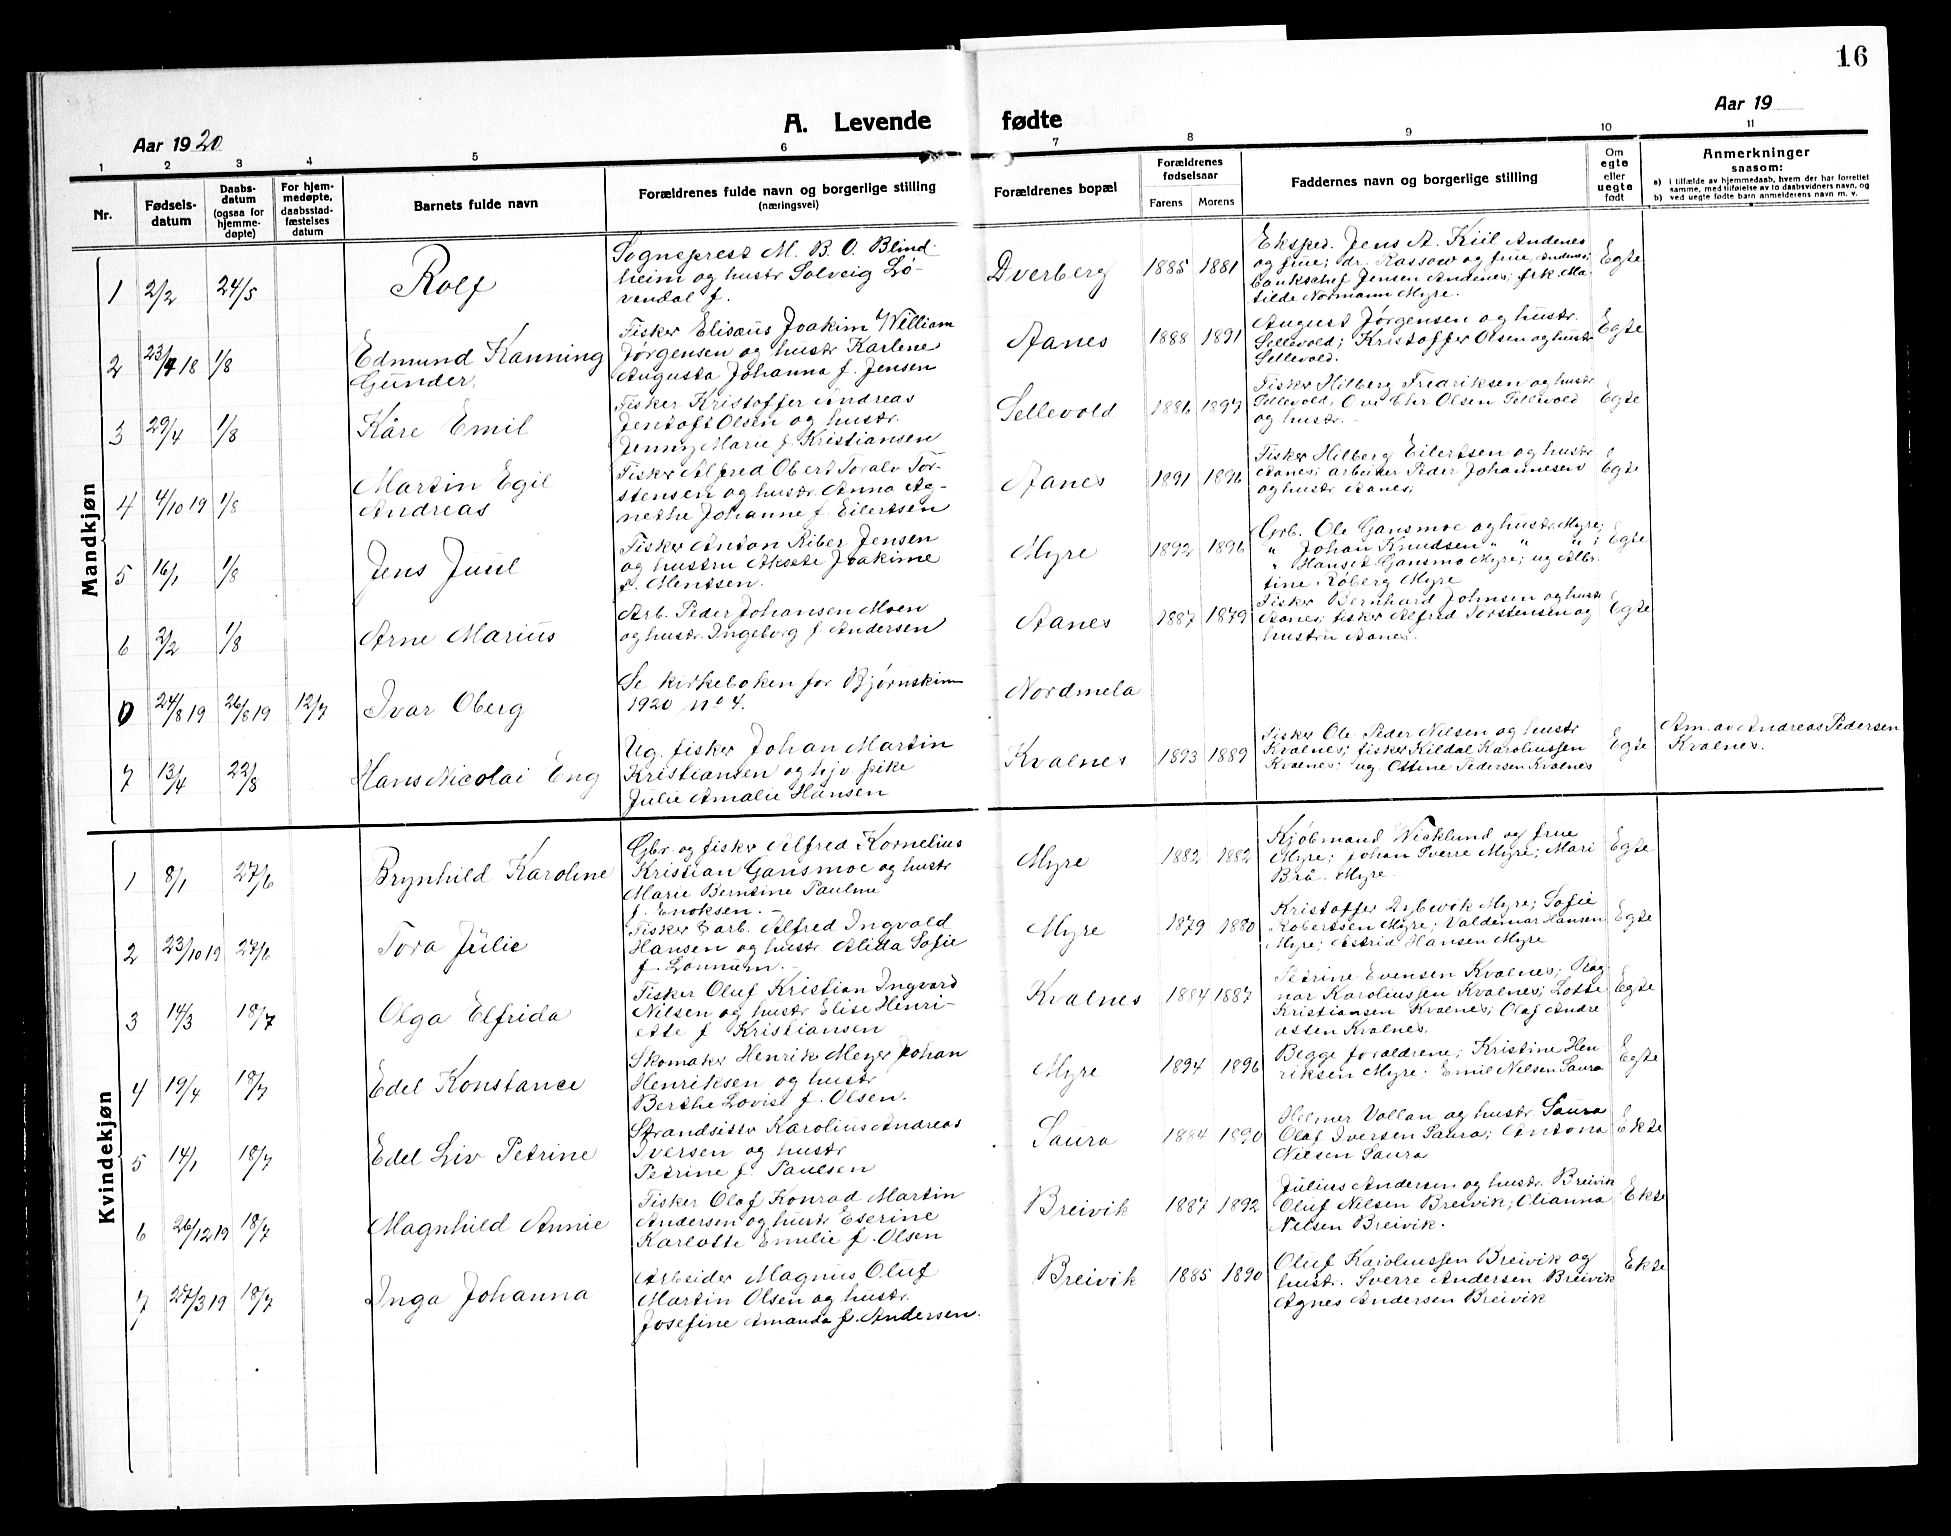 16
Aar 1920
A. Levende fødte
Aar 19
1 2 3 4 5 6 7 8 9 10 11
Nr.
Fødsels-
datum
Daabs-
datum
(ogsaa for
hjemme-
døpte)
For hjem-
medøpte,
daabsstad-
fæstelses
datum
Barnets fulde navn
Forældrenes fulde navn og borgerlige stilling
(næringsvei)
Forældrenes bopæl
Forældrenes
fødselsaar
Farens Morens
Faddernes navn og borgerlige stilling
Om
egte
eller
uegte
født
Anmerkninger
saasom:
a) i tilfælde av hjemmedaab, hvem der har forrettet
samme, med tilføielse av to daabsvidners navn, og
b) ved uegte fødte barn anmelderens navn m. v.
Mandkjøn
1 2/2 24/5
Rolf
Sogneprest M. B. O. Blind-
heim og hustr Solveig Lø-
vendal f.
Dverberg 1885 1881
Eksped. Jens A. Kiil Andenes
og frue; dr. Rassow og frue, Andenes;
bankschef Jensen Andenes; frk. Ma-
tilde Normann Myre.
Egte
2 23/4 18 1/8
Edmund Kanning
Gunder
Fisker Elisæus Joakim William
Jørgensen og hustr Karlene
Augusta Johanna f. Jensen
Aanes 1888 1891
August Jørgensen og hustr.
Sellevold; Kristoffer Olsen og hustr
Sellevold.
Egte
3 29/4 1/8
Kåre Emil
Fisker Kristoffer Andreas
Jentoft Olsen og hustr.
Jenny Marie f Kristiansen
Sellevold 1886 1897
Fisker Hilberg Fredriksen og hustr
Sellevold; Ove Chr Olsen Sellevold
og hustr.
Egte
4 4/10 19 1/8
Martin Egil
Andreas
Fisker Alfred Obert Toralv Tor-
stensen og hustr Anna Ag-
nethe Johanne f. Eilertsen
Aanes 1891 1896
Fisker Hilberg Eilertsen og hustr
Aanes; arbeider Peder Johannesen
og hustr Aanes;
Egte
5 16/1 1/8
Jens Juul
Fisker Anton Riber Jensen
og hustru Aksete Joakime
f. Mentsen.
Myre 1892 1896
Grb. Ole Gansmoe og hustr. Myre;
" Johan Knudsen " " " ;
" Hans Gansmo Myre; ug Alber-
tine Røberg Myre
Egte
6 2/2 1/8
Arne Marius
Arb. Peder Johansen Moen
og hustr. Ingeborg f Andersen
Aanes 1887 1879
Fisker Bernhard Johnsen og hustr
Aanes; fisker Alfred Torstensen og
hustru Aanes.
Egte
0 24/8 19 26/8 19 12/7
Ivar Oberg
Se kirkeboken for Bjørnskinn
1920 no 4.
Nordmela
7 13/4 22/8
Hans Nicolai Eng
Ug. fisker Johan Martin
Kristiansen og hjv pike
Julie Amalie Hansen
Kvalnes 1893 1889
Fisker Ole Peder Nilsen og hustr
Kvalnes; fisker Kildal Karoliussen
Kvalnes; ug. Ottine Pedersen Kvalnes
Egte
Am. av Andreas Pedersen
Kvalnes.
Kvindekjøn
1 8/1 27/6
Brynhild Karoline
Gbr. og fisker Alfred Kornelius
Kristian Gansmoe og hustr
Marie Berntine Pauline
f. Enoksen.
Myre 1882 1882
Kjøbmand Wicklund og frue
Myre; Johan Sverre Myre; Mari
Brå. Myre
Egte
2 23/10 19 27/6
Tora Julie
Fisker & arb. Alfred Ingvald
Hansen og hustr Alida Sofie
f. Lonnum.
Myre 1879 1880
Kristoffer Dybevik Myre; Sofie
Robertsen Myre; Valdemar Hansen
Myre; Astrid Hansen Myre
Egte
3 14/3 18/7
Olga Elfrida
Fisker Oluf Kristian Ingvard
Nilsen og hustr Elise Henri-
ette f Kristiansen
Kvalnes 1884 1887
Petrine Evensen Kvalnes; Rag
nar Karoliussen Kvalnes; Lotte
Kristiansen Kvalnes; Olaf Andre
assen Kvalnes.
Egte
4 19/4 18/7
Edel Konstance
Skomaker Henrik Meyer Johan
Henriksen og hustr
Berthe Lovise f. Olsen.
Myre 1894 1896
Begge forældrene; Kristine Hen
riksen Myre. Emil Nilsen Saura
Egte
5 14/1 18/7
Edel Liv Petrine
Strandsitter Karolius Andreas
Iversen og hustr
Petrine f. Paulsen
Saura 1884 1890
Helmer Vollan og hustr Saura
Olaf Iversen Saura; Antona
Nielsen Saura
Ekte
6 26/12 19 18/7
Magnhild Annie
Fisker Olaf Konrad Martin
Andersen og hustr Eserine
Karlotte Emilie f. Olsen
Breivik 1887 1892
Julius Andersen og hustr. Breivik
Oluf Nilsen Breivik; Olianna
Nilsen Breivik.
Ekte
7 27/3 19 18/7
Inga Johanna
Arbeider Magnus Oluf
Martin Olsen og hustr.
Josefine Amanda f. Andersen.
Breivik 1885 1890
Oluf Karoliussen Breivik og
hustr. Sverre Andersen Breivik
Agnes Andersen Breivik
Ekte